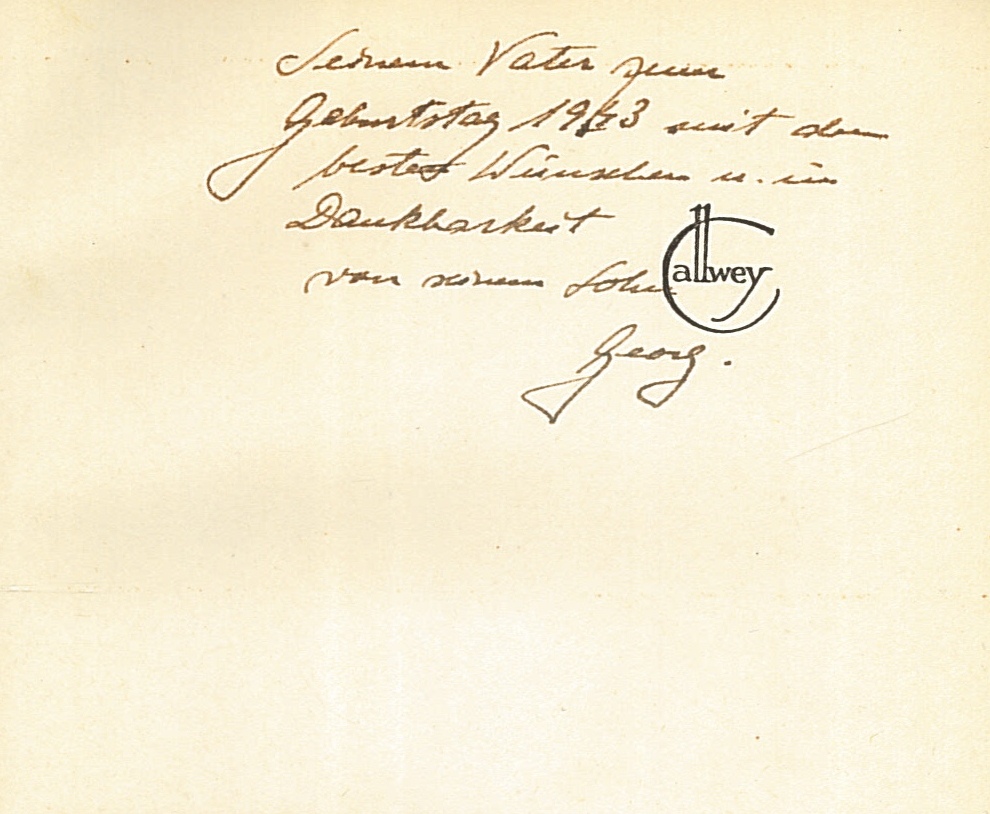 Seinem Vater zum
Geburtstag 1943 mit den
besten Wünschen u. in
Dankbarkeit
von seinem Sohn
Callwey
Georg.